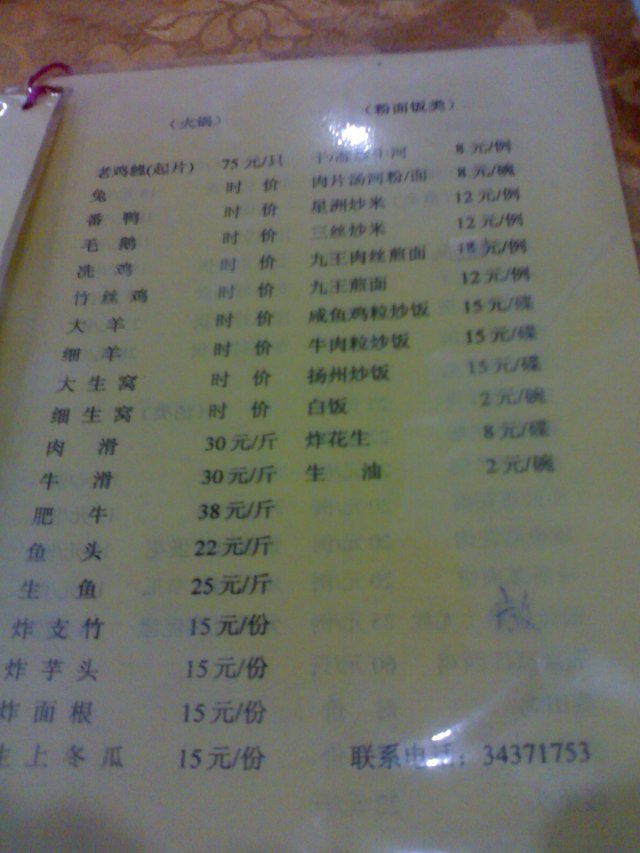 （火锅）
老鸡乸(起片) 75元/只
兔 时价
番鸭 时价
毛鹅 时价
冼鸡 时价
竹丝鸡 时价
大羊 时价
细羊 时价
大生窝 时价
细生窝 时价
肉滑 30元/斤
牛滑 30元/斤
肥牛 38元/斤
鱼头 22元/斤
生鱼 25元/斤
炸支竹 15元/份
炸芋头 15元/份
炸面根 15元/份
生上冬瓜 15元/份
（粉面饭类）
牛河 8元/例
肉片汤河粉/面 8元/碗
星洲炒米 12元/例
三丝炒米 12元/例
九王肉丝煎面 18元/例
九王煎面 12元/例
咸鱼鸡粒炒饭 15元/碟
牛肉粒炒饭 15元/碟
扬州炒饭 15元/碟
白饭 2元/碗
炸花生 8元/碟
生油 2元/碗
联系电话：34371753